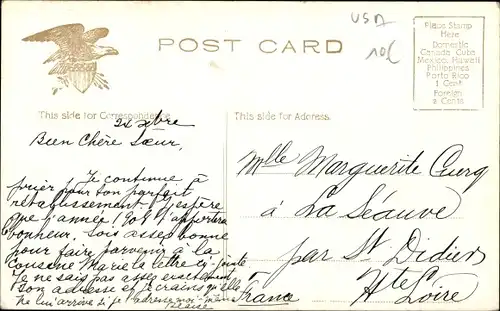 USA
10€
POST CARD
Place Stamp
Here
Domestic
Canada Cuba
Mexico, Hawaii
Philippines
Porto Rico
1 Cent
Foreign
2 Cents
This side for Correspondence
This side for Address.
24 xbre
Bien Chère Sœur,
Je continue à
prier pour ton parfait
rétablissement. J'espère
que l'année 1908 t'apportera
bonheur. Sois assez bonne
pour faire parvenir à la
Cousine Marie la lettre ci-jointe
Je ne sais pas assez exactement
son adresse et je crains qu'elle
ne lui arrive si je l'adresse moi-même
Mlle Marguerite
à La Séauve
par St Didier
Hte Loire
France